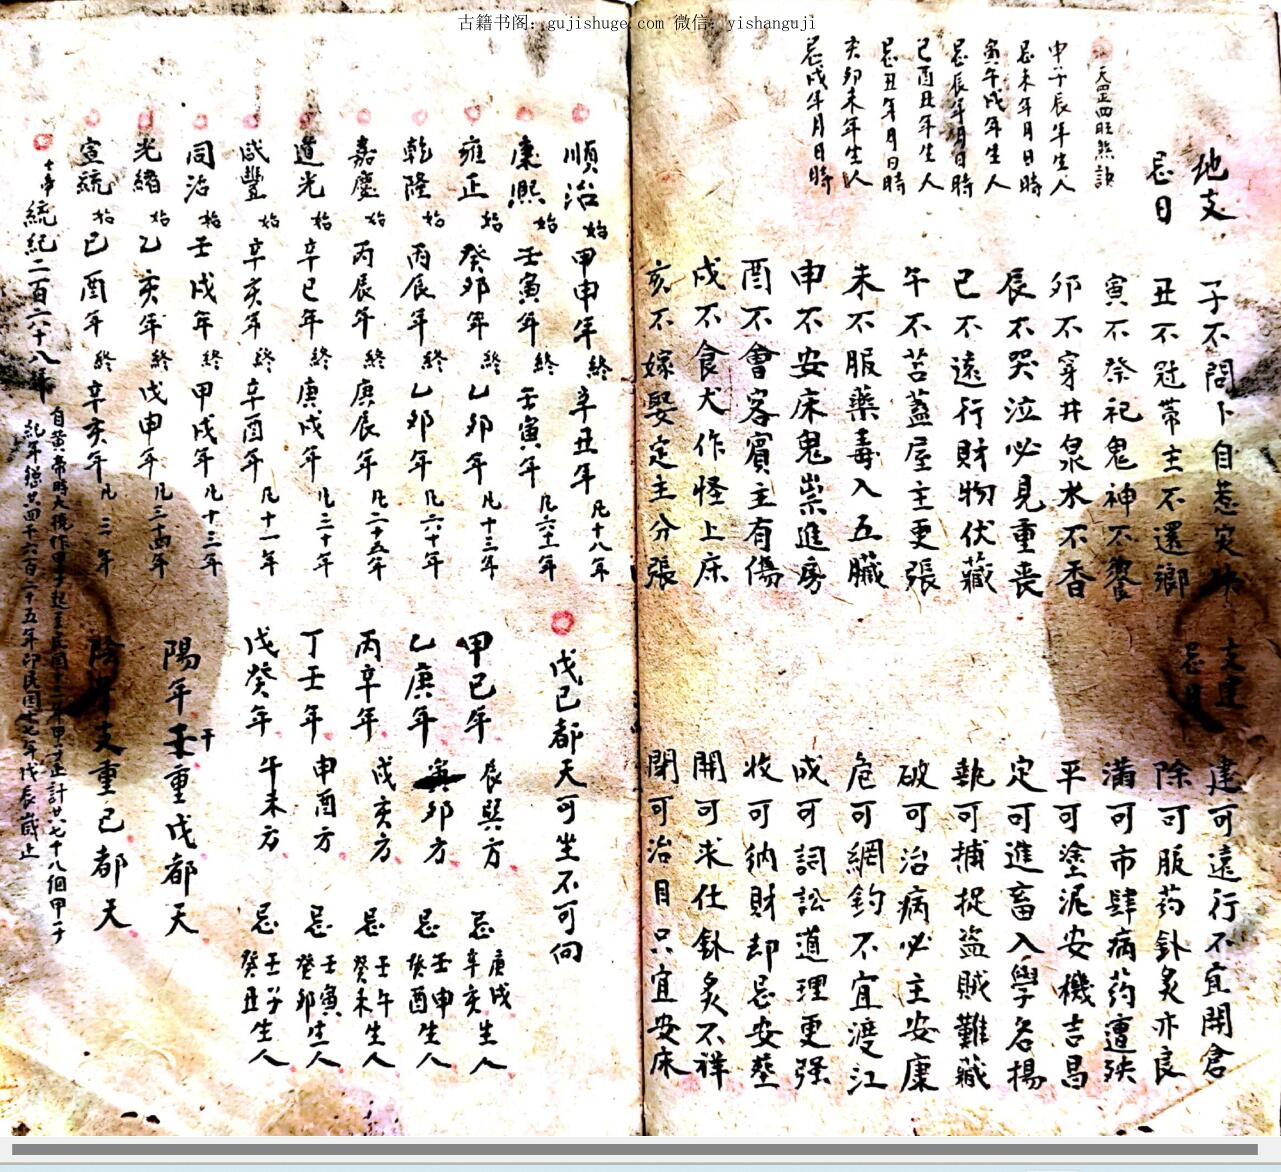 古籍书阁：gujishuge.com 微信：yishanguji
天罡四旺煞訣
申子辰年生人
忌未年月日時
寅午戌年生人
忌辰年月日時
巳酉丑年生人
忌丑年月日時
亥卯未年生人
忌戌年月日時
地支
忌日
子不問卜自惹災殃
丑不冠帶主不還鄉
寅不祭祀鬼神不饗
卯不穿井泉水不香
辰不哭泣必見重喪
巳不遠行財物伏藏
午不苫蓋屋主更張
未不服藥毒入五臟
申不安床鬼祟進房
酉不會客賓主有傷
戌不食犬作怪上床
亥不嫁娶定主分張
支建
忌
建可遠行不宜開倉
除可服药針炙亦良
滿可市肆病药遭殃
平可塗泥安機吉昌
定可進畜入學名揚
執可捕捉盜賊難藏
破可治病必主安康
危可網釣不宜渡江
成可詞訟道理更强
收可納財却忌安塟
開可求仕針炙不祥
閉可治目只宜安床
順治 始甲申年 終辛丑年 凡十八年
康熙 始壬寅年 終壬寅年 凡六十一年
雍正 始癸卯年 終乙卯年 凡十三年
乾隆 始丙辰年 終乙卯年 凡六十年
嘉慶 始丙辰年 終庚辰年 凡二十五年
道光 始辛巳年 終庚戌年 凡三十年
咸豐 始辛亥年 終辛酉年 凡十一年
同治 始壬戌年 終甲戌年 凡十三年
光緒 始乙亥年 終戊申年 凡三十四年
宣統 始己酉年 終辛亥年 凡三年
十帝統紀二百六十八年
自黃帝時大撓作甲子起至民國十二年甲子正計廿七十八個甲子
紀年總共四千六百二十五年即民国十七年戊辰歲止
戊己都天可坐不可向
甲己年 辰巽方 忌庚戌辛亥生人
乙庚年 寅卯方 忌壬申癸酉生人
丙辛年 戌亥方 忌壬午癸未生人
丁壬年 申酉方 忌壬寅癸卯生人
戊癸年 午未方 忌壬子癸丑生人
陽年壬干重戊都天
陰年支重己都天